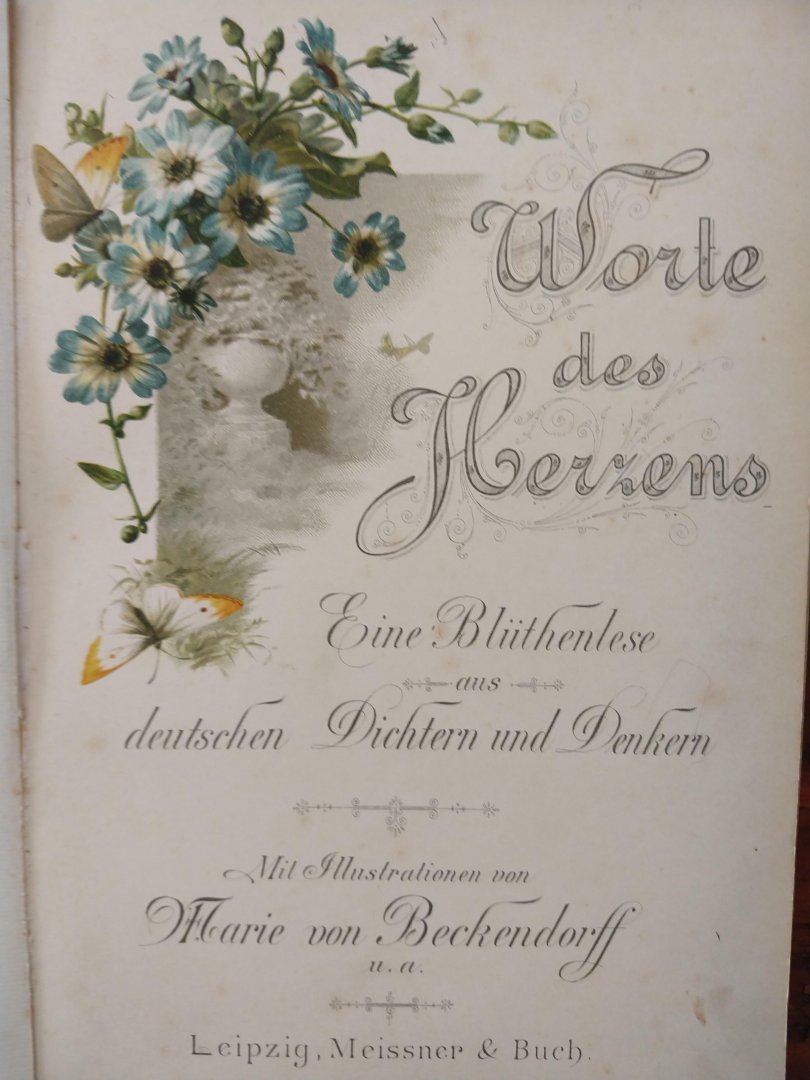 Worte
des
Herzens
Eine Blüthenlese
aus
deutschen Dichtern und Denkern
Mit Illustrationen von
Marie von Beckendorff
u. a.
Leipzig, Meissner & Buch.